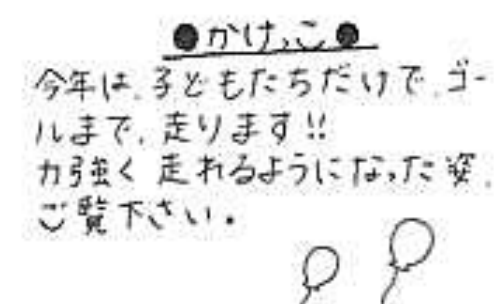 ●かけっこ●
今年は、子どもたちだけで、ゴー
ルまで、走ります!!
力強く走れるようになった姿、
ご覧下さい。